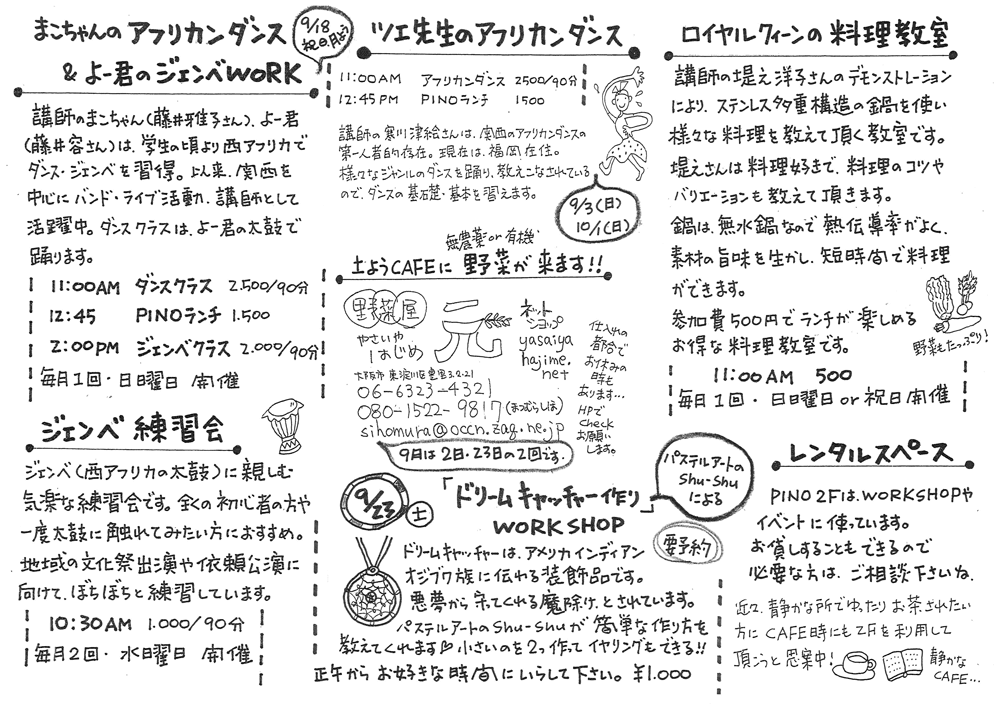 まこちゃんの アフリカンダンス
& よー君の ジェンベWORK
9/18 祝日月よう
講師のまこちゃん(藤井雅子さん)、よー君
(藤井容さん)は、学生の頃より西アフリカで
ダンス・ジェンベを習得。以来、関西を
中心にバンド・ライブ活動、講師として
活躍中。ダンスクラスは、よー君の太鼓で
踊ります。
11:00AM ダンスクラス 2.500/90分
12:45 PINOランチ 1.500
2:00PM ジェンベクラス 2.000/90分
毎月1回・日曜日 開催
ジェンベ 練習会
ジェンベ(西アフリカの太鼓)に親しむ
気楽な練習会です。全くの初心者の方や
一度太鼓に触れてみたい方におすすめ。
地域の文化祭出演や依頼公演に
向けて、ぼちぼちと練習しています。
10:30AM 1.000/90分
毎月2回・水曜日 開催
ツエ先生のアフリカンダンス
11:00AM アフリカンダンス 2500/90分
12:45PM PINOランチ 1500
講師の寒川津絵さんは、関西のアフリカンダンスの
第一人者的存在。現在は、福岡在住。
様々なジャンルのダンスを踊り、教えこなされている
ので、ダンスの基礎・基本を習えます。
9/3(日)
10/1(日)
無農薬or有機
土ようCAFEに 野菜が来ます!!
野菜屋 元
やさいや
はじめ
ネット
ショップ
yasaiya
hajime.
net
大阪市 東淀川区豊里3-2-21
06-6323-4321
080-1522-9817(まつむらしほ)
sihomura@occn.zaq.ne.jp
仕入れの
都合で
お休みの
時も
あります…
HPで
check
お願い
します。
9月は2日・23日の2回です。
9/23 土
「ドリームキャッチャー作り
WORKSHOP
パステルアートの
Shu-Shu
による
要予約
ドリームキャッチャーは、アメリカインディアン
オジブワ族に伝わる装飾品です。
悪夢から守ってくれる魔除け、とされています。
パステルアートのShu-Shuが 簡単な作り方を
教えてくれます♡ 小さいのを2つ作ってイヤリングもできる!!
正午から お好きな時間にいらして下さい。 ¥1.000
ロイヤルクィーンの 料理教室
講師の堤え洋子さんのデモンストレーション
により、ステンレス多重構造の鍋を使い
様々な料理を教えて頂く教室です。
堤えさんは料理好きで、料理のコツや
バリエーションも教えて頂きます。
鍋は、無水鍋なので熱伝導率がよく、
素材の旨味を生かし、短時間で料理
ができます。
参加費500円でランチが楽しめる
お得な料理教室です。
野菜もたっぷり!
11:00AM 500
毎月1回・日曜日or祝日開催
レンタルスペース
PINO 2Fは、WORKSHOPや
イベントに使っています。
お貸しすることもできるので
必要な方は、ご相談下さいね。
近々、静かな所でゆったりお茶されたい
方にCAFE時にも2Fを利用して
頂こうと思案中!
静かな
CAFE…